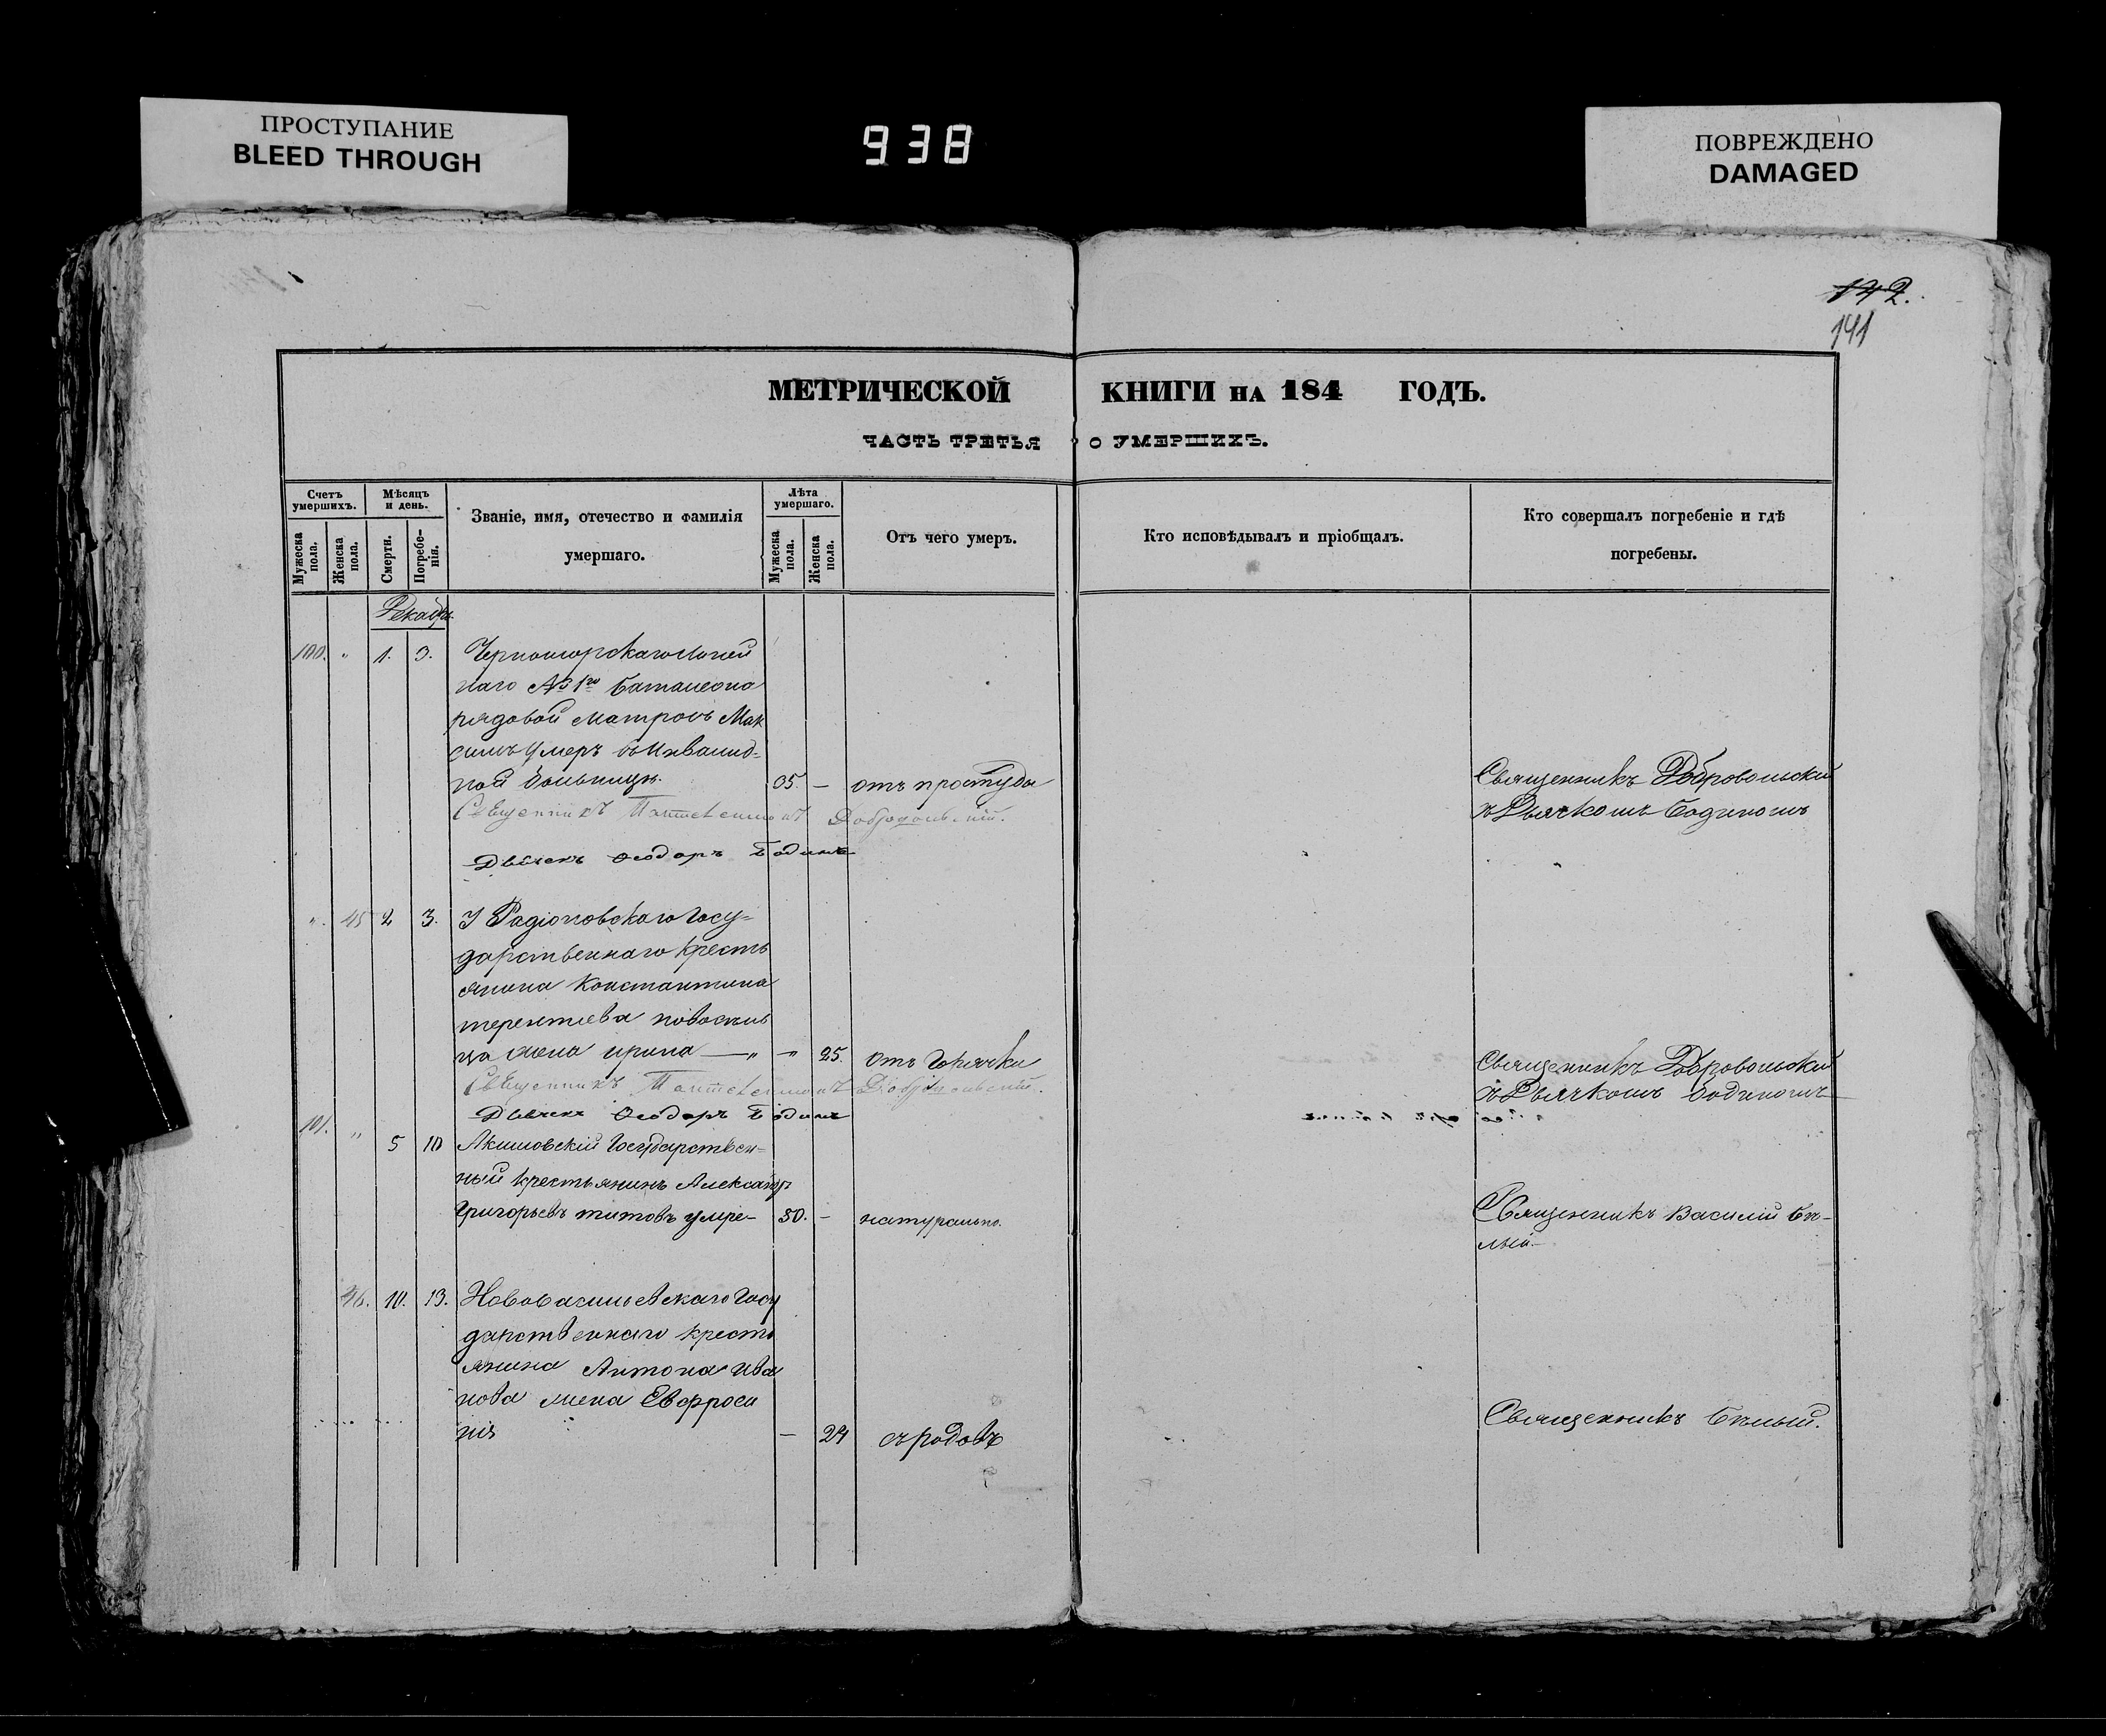 ПРОСТУПАНИЕ
BLEED THROUGH
938
ПОВРЕЖДЕНО
DAMAGED
142.
141
МЕТРИЧЕСКОЙ КНИГИ НА 184 ГОДЪ.
ЧАСТЬ ТРЕТЬЯ О УМЕРШИХЪ.
Счетъ умершихъ.
Мужеска пола.
Женска пола.
Мѣсяцъ и день.
Смерти.
Погребе-
нія.
Званіе, имя, отечество и фамилія
умершаго.
Лѣта умершаго.
Мужеска пола.
Женска пола.
Отъ чего умеръ.
Кто исповѣдывалъ и пріобщалъ.
Кто совершалъ погребеніе и гдѣ
погребены.
Декабрь
100. " 1. 3. Черноморскаго Линей
наго № 1го баталеона
рядовой Матровъ Мак
симъ умеръ въ Инвалид-
ной больницы. 35. — отъ простуды
Священникъ Добровольскій
съ Дьячкомъ Бодиномъ
Священникъ Добровольскій.
Дьячекъ Ѳеодоръ Бодинъ
" 45 2 3. У Радіоновскаго Госу-
дарственнаго кресть
янина Константина
терентиева новосель
ца жена ирина — " — " 25. отъ горячки
Священникъ Добровольскій
съ Дьячкомъ бодиномъ
Священникъ Добровольскій.
Дьячекъ Ѳеодоръ Бодинъ
101. " 5 10 Акимовскій Государствен-
ный крестьянинъ Александр
Григорьевъ титовъ умре- 80. — натурально.
Священникъ Василій бѣ-
лый.
46. 10. 13. Нововасильевскаго Госу
дарственнаго кресть
янина Антона ива
нова жена Евфроси
нія — 24 съ родовъ
Священникъ бѣлый.